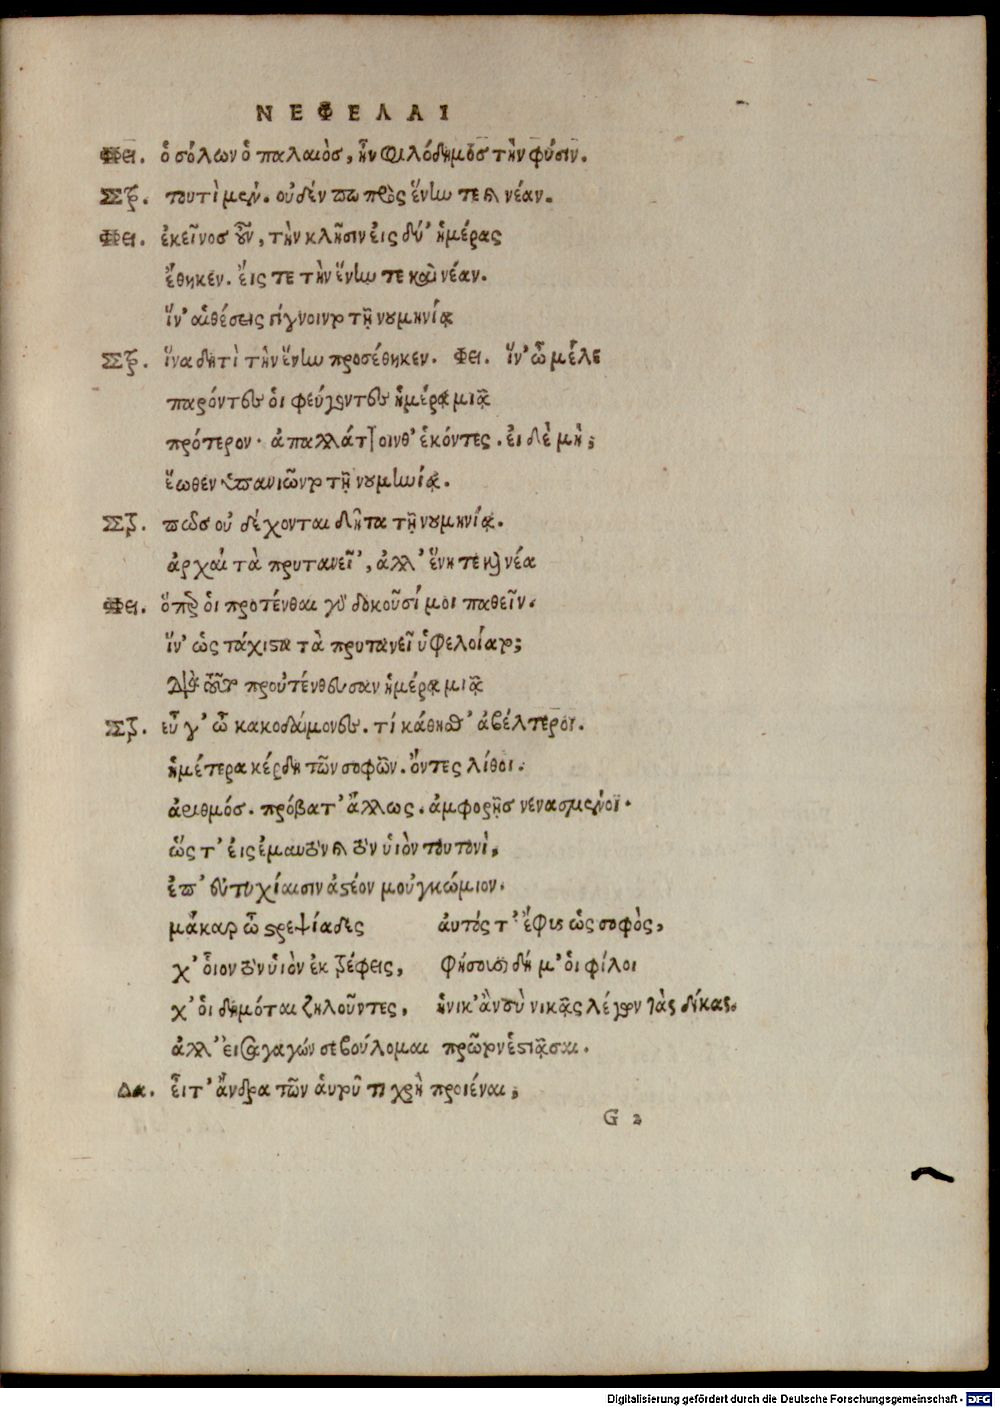 ΝΕΦΕΛΑΙ
Φει. ὁ σόλων ὁ παλαιὸς, ἦν φιλόδημος τὴν φύσιν.
Στρ. τουτὶ μὲν. οὐδέν πω πρὸς ἕνην τε καὶ νέαν.
Φει. ἐκεῖνος οὖν, τὴν κλῆσιν εἰς δύ' ἡμέρας
ἔθηκεν. εἴς τε τὴν ἕνην τε καὶ νέαν.
ἵν' αἱ θέσεις γίγνοιντο τῇ νουμηνίᾳ
Στρ. ἵνα δὴ τὶ τὴν ἕνην προσέθηκεν. Φει. ἵν' ὦ μέλε
παρόντες οἱ φεύγοντες ἡμέρᾳ μιᾷ
πρότερον· ἀπαλλάττοινθ' ἑκόντες. εἰ δὲ μὴ;
ἕωθεν ὑπανιῶντο τῇ νουμηνίᾳ.
Στρ. πῶς οὐ δέχονται δῆτα τῇ νουμηνίᾳ.
ἀρχαὶ τὰ πρυτανεῖ', ἀλλ' ἕνη τε καὶ νέα
Φει. ὅπερ οἱ προτένθαι γὰρ δοκοῦσί μοι παθεῖν.
ἵν' ὡς τάχιστα τὰ πρυτανεῖ ὑφελοίατο;
Διὰ τοῦτο προὐτένθευσαν ἡμέρᾳ μιᾷ
Στρ. εὖ γ' ὦ κακοδαίμονες. τί κάθησθ' ἀβέλτεροι.
ἡμέτερα κέρδη τῶν σοφῶν. ὄντες λίθοι.
ἀριθμός. πρόβατ' ἄλλως. ἀμφορῇς νενασμένοι.
ὥς τ' εἰς ἐμαυτὸν καὶ τὸν υἱὸν τουτονὶ,
ἐπ' εὐτυχίαισιν ἀστέον μοὐγκώμιον.
μάκαρ ὦ στρεψίαδες αὐτός τ' ἔφυς ὡς σοφὸς,
χ' οἷον τὸν υἱὸν ἐκτρέφεις, φήσουσι δή μ' οἱ φίλοι
χ' οἱ δημόται ζηλοῦντες, ἡνίκ' ἂν σὺ νικᾷς λέγων τὰς δίκας.
ἀλλ' εἰσαγαγών σε βούλομαι πρῶτον ἑστιᾶσαι.
Δα. εἶτ' ἄνδρα τῶν αὑτοῦ τι χρὴ προιέναι;
G 2
Digitalisierung gefördert durch die Deutsche Forschungsgemeinschaft - DFG